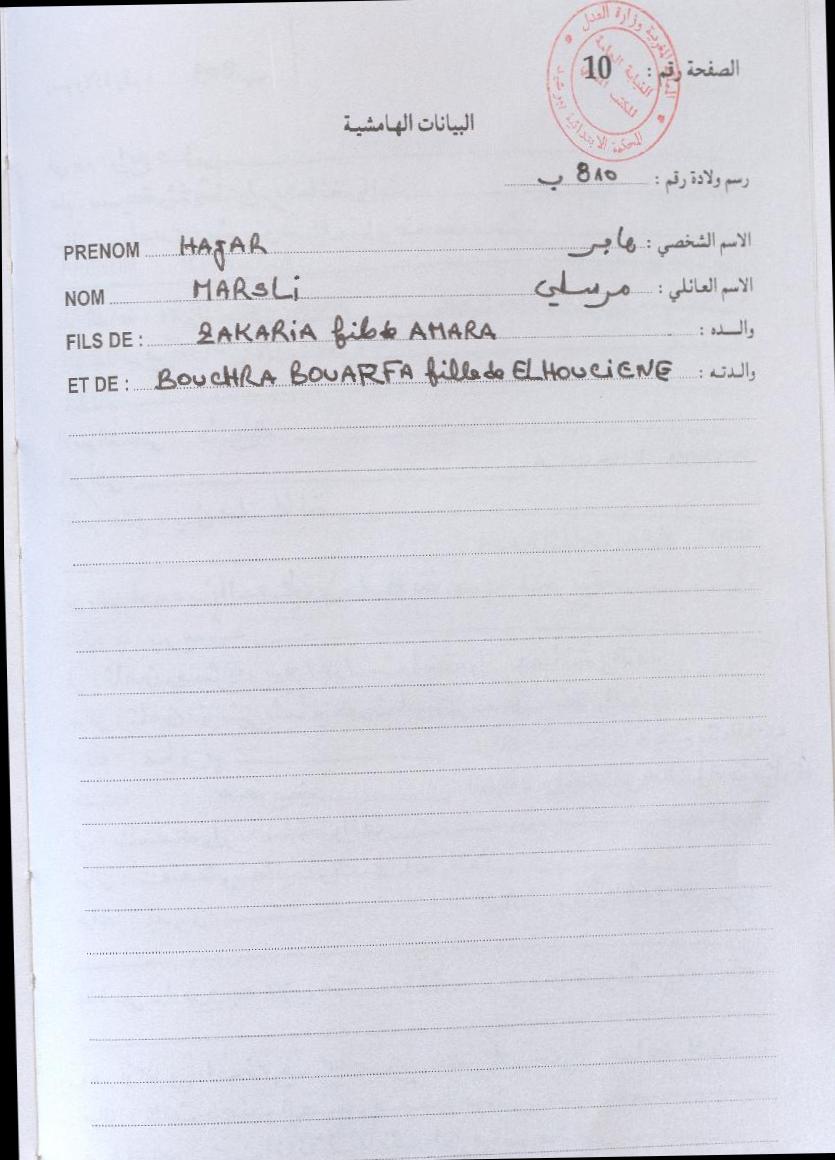 المملكة المغربية وزارة العدل
النيابة العامة
المحكمة الابتدائية
الصفحة رقم : 10
البيانات الهامشية
رسم ولادة رقم : 810 ب
PRENOM HAJAR هاجر الاسم الشخصي :
NOM MARSLi مرسلي الاسم العائلي :
FILS DE : ZAKARiA fils de AMARA والـــده :
ET DE : BOUCHRA BOUARFA fille de ELHOUCIENE والدتـه :